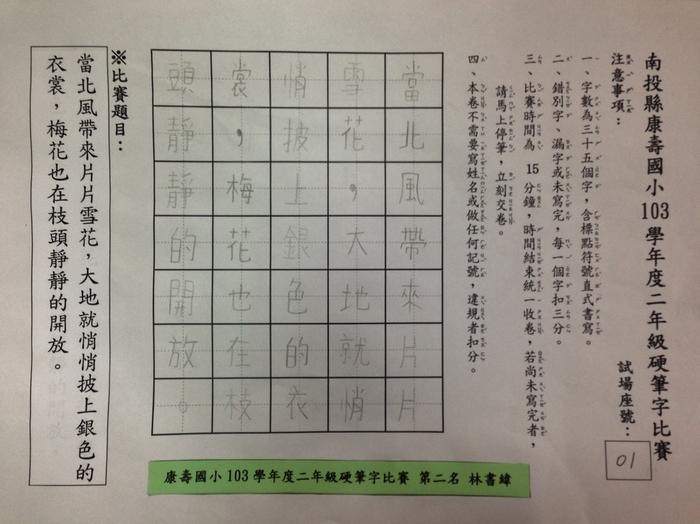 南投縣康壽國小103學年度二年級硬筆字比賽
試場座號：
01
注意事項：
一、字數為三十五個字，含標點符號直式書寫。
二、錯別字、漏字或未寫完，每一個字扣三分。
三、比賽時間為 15 分鐘，時間結束統一收卷，若尚未寫完者，
請馬上停筆，立刻交卷。
四、本卷不需要寫姓名或做任何記號，違規者扣分。
當北風帶來片片
雪花，大地就悄
悄披上銀色的衣
裳，梅花也在枝
頭靜靜的開放。
※比賽題目：
當北風帶來片片雪花，大地就悄悄披上銀色的
衣裳，梅花也在枝頭靜靜的開放。
康壽國小 103 學年度二年級硬筆字比賽 第二名 林書緯